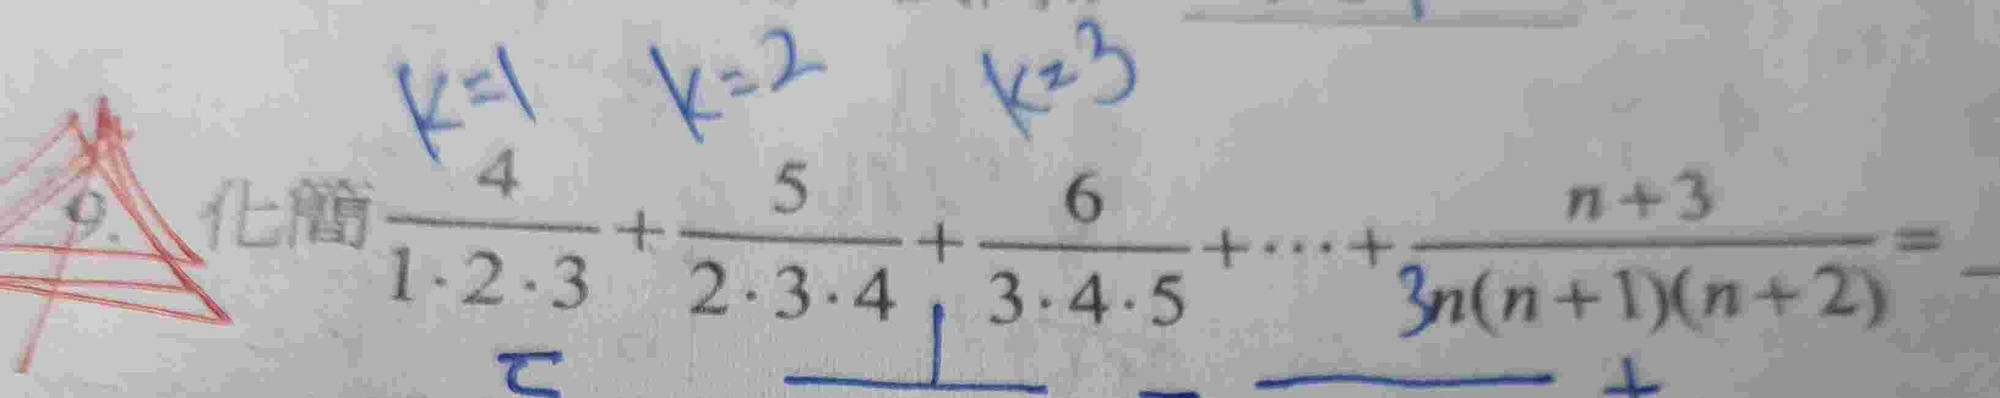 k=1 k=2 k=3
9. 化簡 4/(1·2·3) + 5/(2·3·4) + 6/(3·4·5) + ··· + (n+3)/(3n(n+1)(n+2)) =